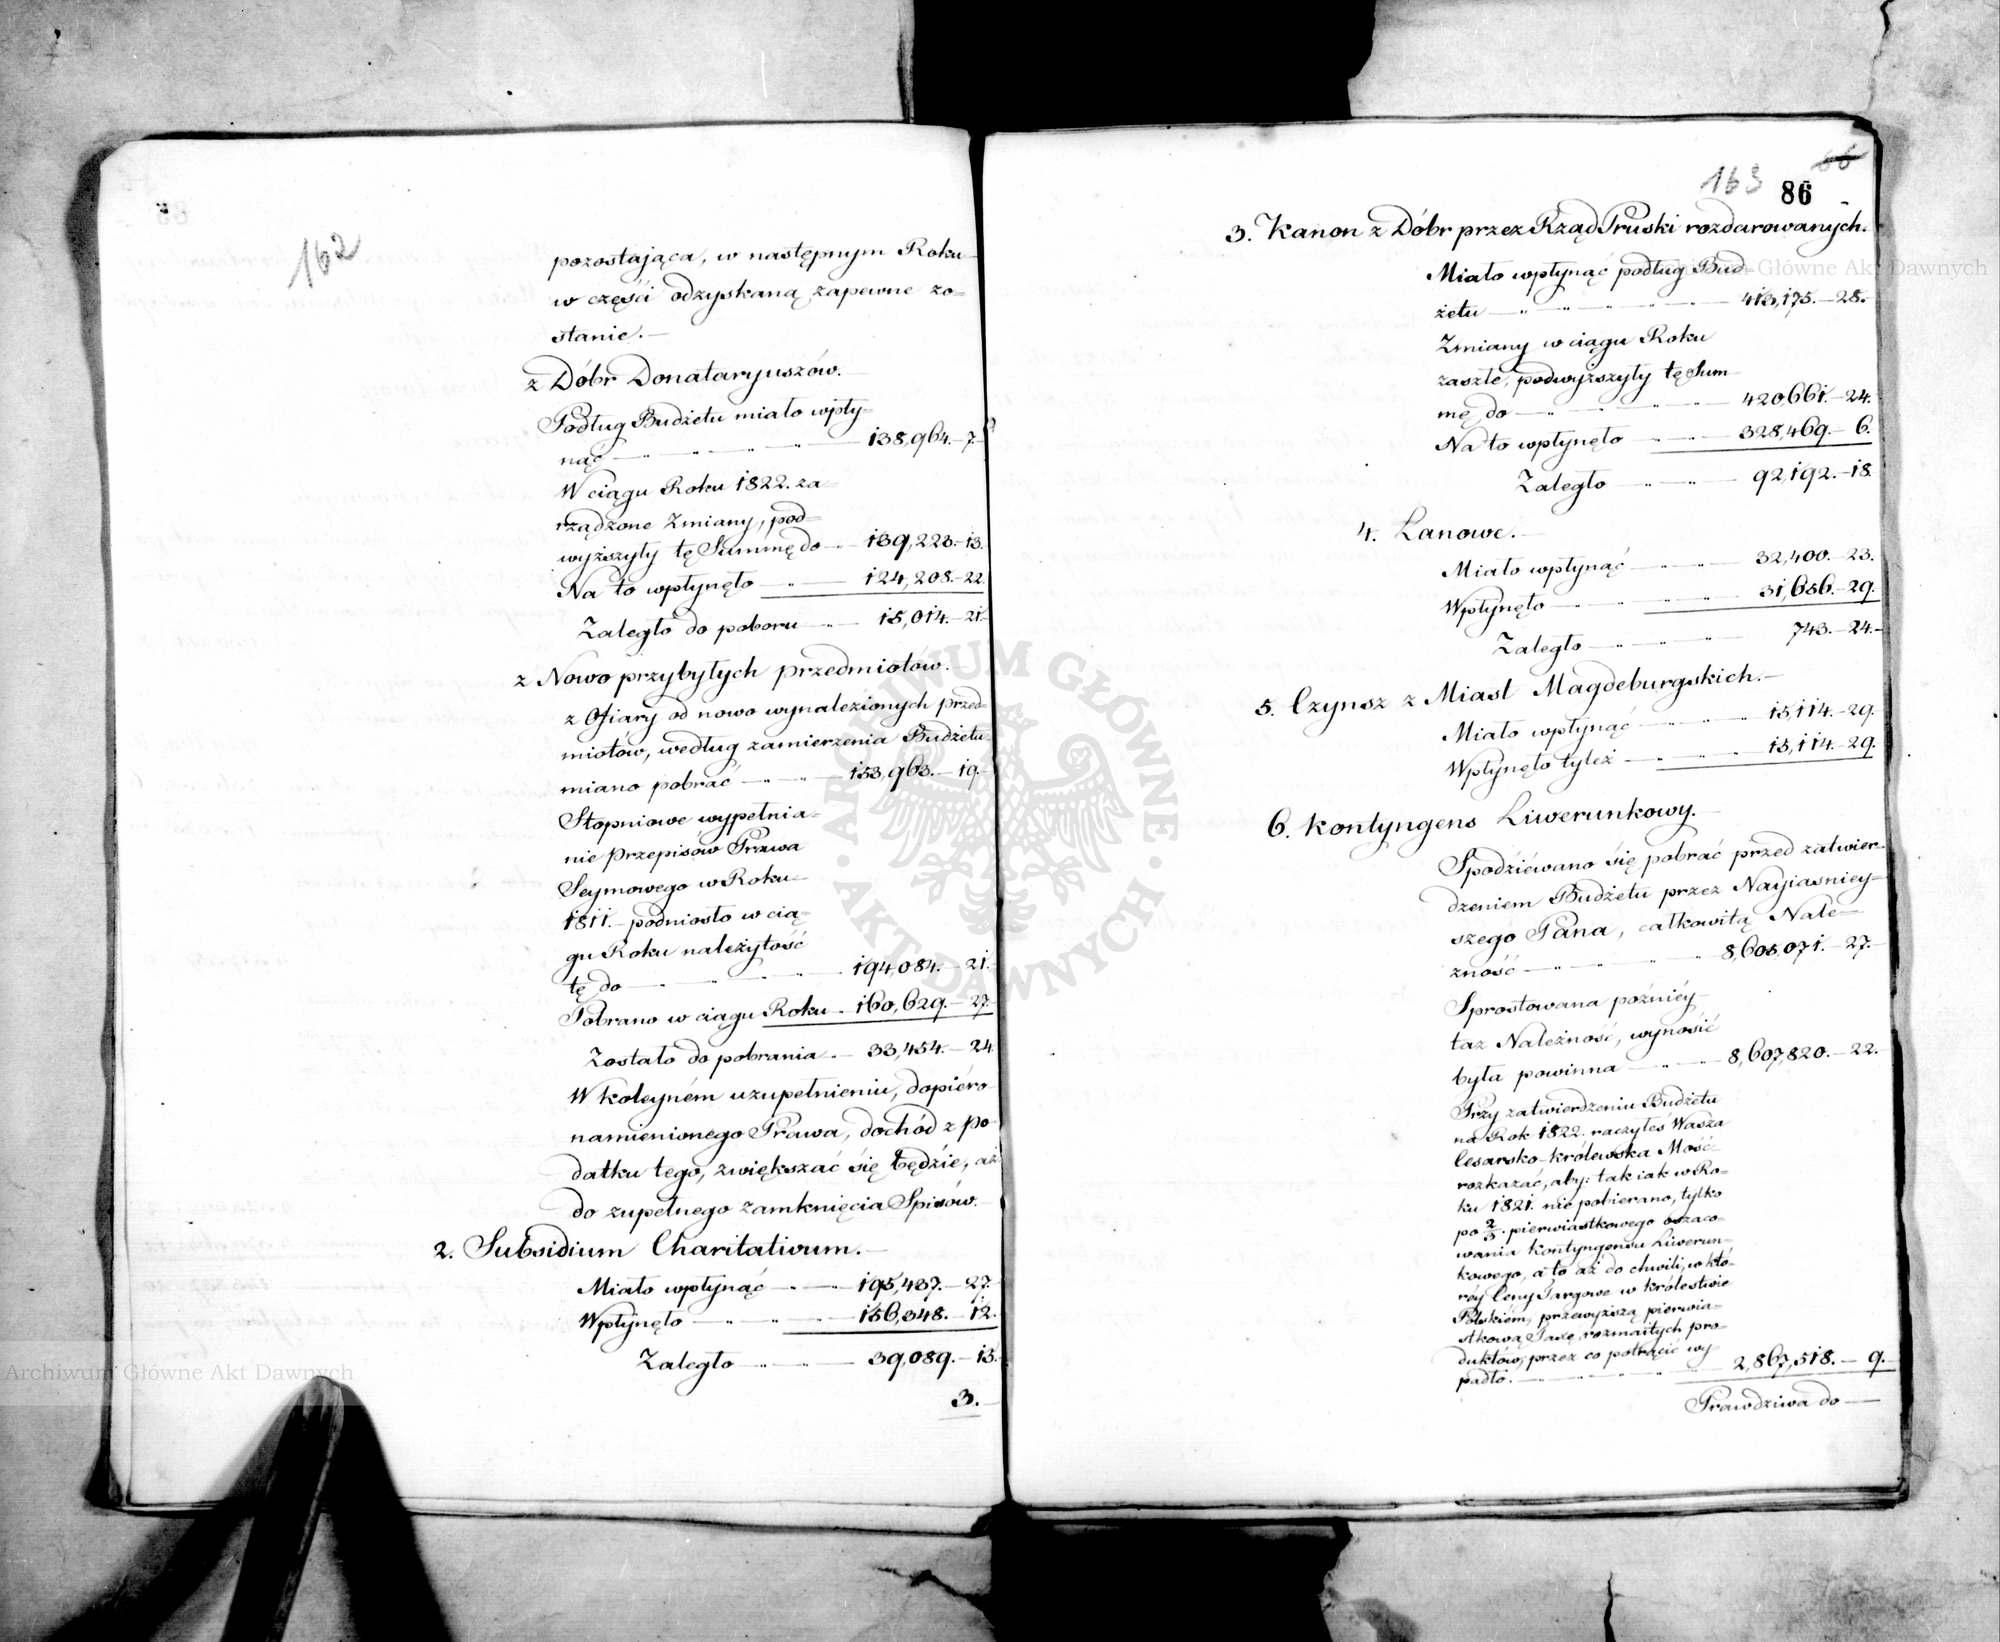 162
pozostająca, w następnym Roku
w części odzyskaną zapewne zo=
stanie.—
z Dóbr Donataryuszów.—
Podług Budżetu miało wpły=
nąć — " — " — 138,964.—7.
W ciągu Roku 1822. za=
rządzone Zmiany, pod=
wyższyły tę Summę do — " — 139,223.—13.
Na to wpłynęło — " — 124,208.—22.
Zaległo do poboru — " — 15,014.—21.
z Nowo przybyłych przedmiotów.—
z Ofiary od nowo wynalezionych przed=
miotów, według zamierzenia Budżetu
miano pobrać — " — " — 153,963.—19.
Stopniowe wypełnia=
nie Przepisów Prawa
Seymowego w Roku
1811.— podniosło w cią=
gu Roku należytość
tę do — " — " — 194,084.—21.
Pobrano w ciągu Roku " 160,629.—27.
Zostało do pobrania " — 33,454.—24.
W koleyném uzupełnieniu, dopiéro
namienionego Prawa, dochód z po=
datku tego, zwiększać się będzie, aż
do zupełnego zamknięcia Spisów.—
2. Subsidium Charitativum.—
Miało wpłynąć — " — 195,437.—27.
Wpłynęło — " — " — 156,348.—12.
Zaległo — " — " — 39,089.—15.
3.
163 86
3. Kanon z Dóbr przez Rząd Pruski rozdarowanych.
Miało wpłynąć podług Bud=
żetu — " — " — " — 413,175.—28.
Zmiany w ciągu Roku
zaszłe, podwyższyły tę Sum=
mę do — " — " — " — 420,661.—24.
Na to wpłynęło — " — " — 328,469.—6.
Zaległo — " — " — 92,192.—18.
4. Łanowe.—
Miało wpłynąć — " — " — 32,400.—23.
Wpłynęło — " — " — 31,656.—29.
Zaległo — " — " — 743.—24.—
5. Czynsz z Miast Magdeburgskich.—
Miało wpłynąć — " — " — 15,114.—29.
Wpłynęło tyleż — " — " — 15,114.—29.
6. Kontyngens Liwerunkowy.—
Spodziéwano się pobrać przed zatwier=
dzeniem Budżetu przez Nayiasniey=
szego Pana, całkowitą Nale=
zność — " — " — " — 8,605,071.—27.—
Sprostowana pozniéy
taz Należność, wynosić
była powinna — " — " — 8,607,820.—22.
Przy zatwierdzeniu Budżetu
na Rok 1822. raczyłeś Wasza
Cesarsko-królewska Mość
rozkazać, aby: tak iak w Ro=
ku 1821. nie pobierano, tylko
po 2/3. pierwiastkowego oszaco=
wania kontyngensu Liwerun=
kowego, a to aż do chwili, w któ=
réy Ceny Targowe w królestwie
Polskiém, przewyższą pierwia=
stkową Taxę, rozmaitych pro=
duktów, przez co potrącić wy=
padło.— " — " — " — 2,867,518.—9.—
Prawdziwa do —
Archiwum Główne Akt Dawnych
Archiwum Główne Akt Dawnych
ARCHIWUM GŁÓWNE · AKT DAWNYCH ·